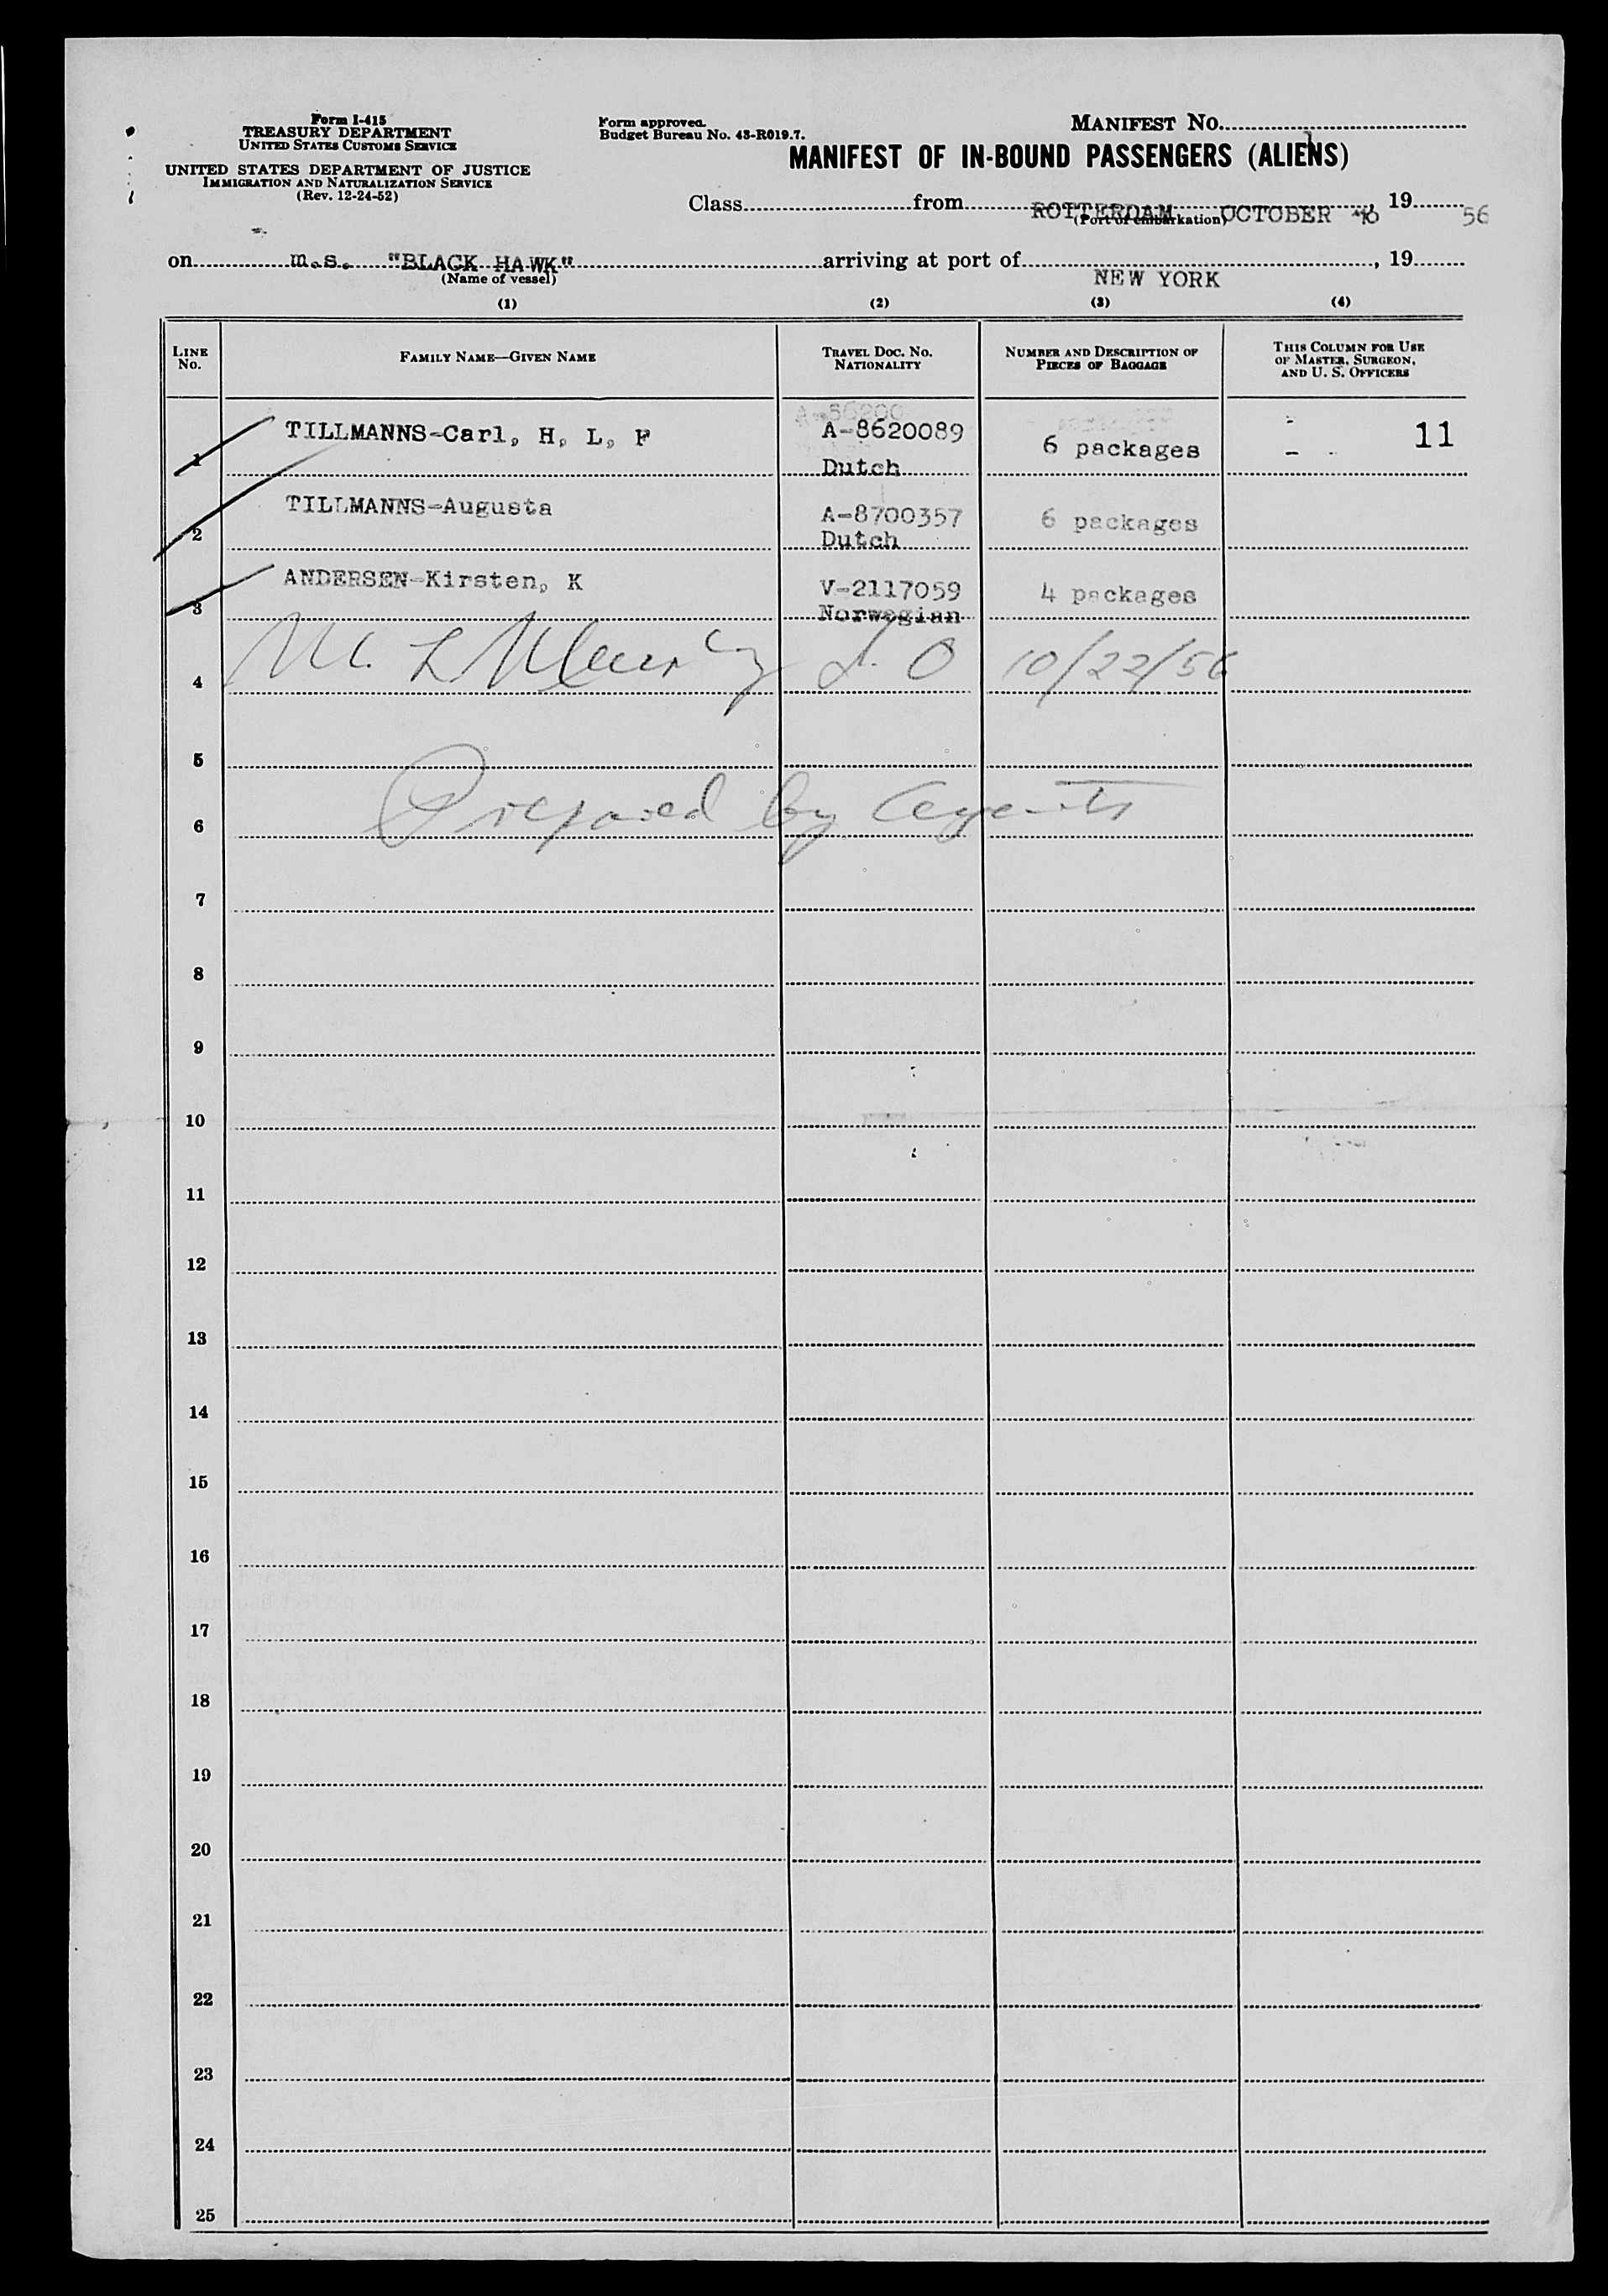 Form I-415
TREASURY DEPARTMENT
UNITED STATES CUSTOMS SERVICE
UNITED STATES DEPARTMENT OF JUSTICE
IMMIGRATION AND NATURALIZATION SERVICE
(Rev. 12-24-52)
Form approved.
Budget Bureau No. 43-R019.7.
MANIFEST NO.
MANIFEST OF IN-BOUND PASSENGERS (ALIENS)
Class from ROTTERDAM OCTOBER , 19 56
(Port of embarkation)
on m.s. "BLACK HAWK" arriving at port of NEW YORK , 19
(Name of vessel)
(1) (2) (3) (4)
LINE No. FAMILY NAME—GIVEN NAME TRAVEL DOC. NO. NATIONALITY NUMBER AND DESCRIPTION OF PIECES OF BAGGAGE THIS COLUMN FOR USE OF MASTER, SURGEON, AND U. S. OFFICERS
1 TILLMANNS-Carl, H, L, F A-8620089 6 packages 11
Dutch
2 TILLMANNS-Augusta A-8700357 6 packages
Dutch
3 ANDERSEN-Kirsten, K V-2117059 4 packages
Norwegian
4 M. L 10/22/56
5
6 Prepared by Agents
7
8
9
10
11
12
13
14
15
16
17
18
19
20
21
22
23
24
25